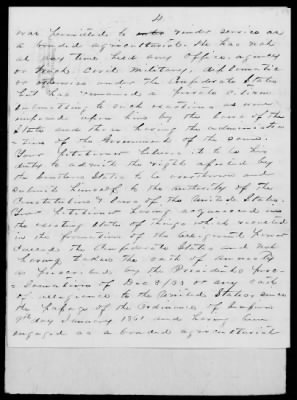 4
was permitted to render service as
a bonded agriculturist. He has not
at any time held any office, agency
or trust, Civil, Military, diplomatic
or otherwise under the Confederate States
but has remained a private citizen
submitting to such exactions as were
imposed upon him by the laws of the
State and those having the administra
tion of the Government of the same.
Your petitioner believes it to be his
duty to admit the rights affected by
the Southern States to be overthrown and
submit himself to the authority of the
Constitution & laws of the United States.
Your petitioner having acquiesced in
the existing state of things which resulted
in the formation of the
the Confederate States and not
having taken the oath of Amnesty
as prescribed by the Presidents proc
lamation of Dec 8/63 or any oath
of allegiance to the United States, since
the passage of the Ordinance of
9th day January 1861 and having been
engaged as a bonded agriculturist